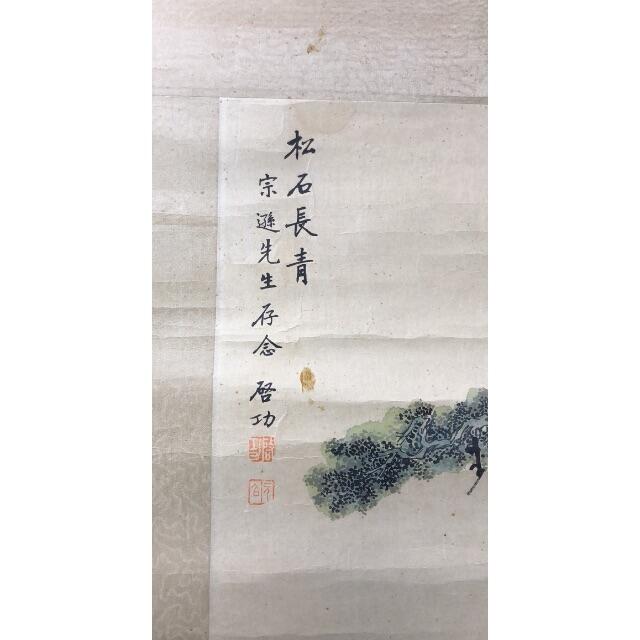 松石長青
宗遜先生存念 啓功